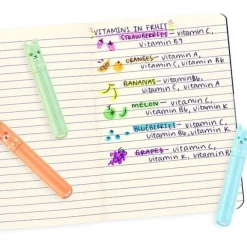 VITAMINS IN FRUIT
STRAWBERRIES - vitamin C,
vitamin B9
ORANGES - vitamin A,
vitamin C, vitamin B6
BANANAS - vitamin B6,
vitamin C, vitamin A
MELON - vitamin C,
vitamin B6, vitamin K
BLUEBERRIES - vitamin C,
vitamin B6, vitamin K
GRAPES - vitamin C,
vitamin B6, vitamin K